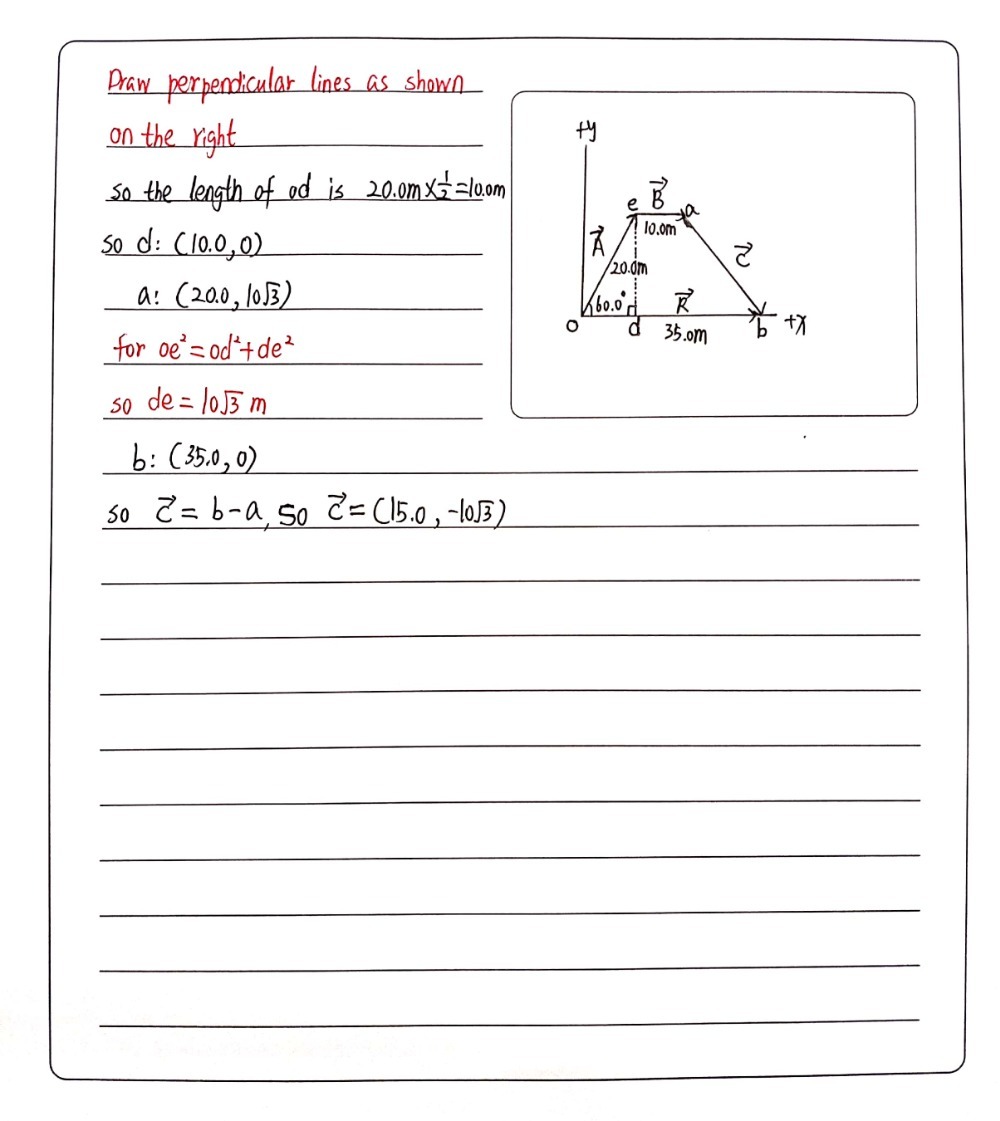 Draw perpendicular lines as shown
on the right
so the length of od is 20.0m×½=10.0m
so d: (10.0,0)
a: (20.0,10√3)
for oe²=od²+de²
so de=10√3 m
b: (35.0,0)
so C⃗=b-a, so C⃗=(15.0,-10√3)
+y
e B⃗ a
10.0m
A⃗
C⃗
20.0m
60.0° R⃗
o d b +x
35.0m